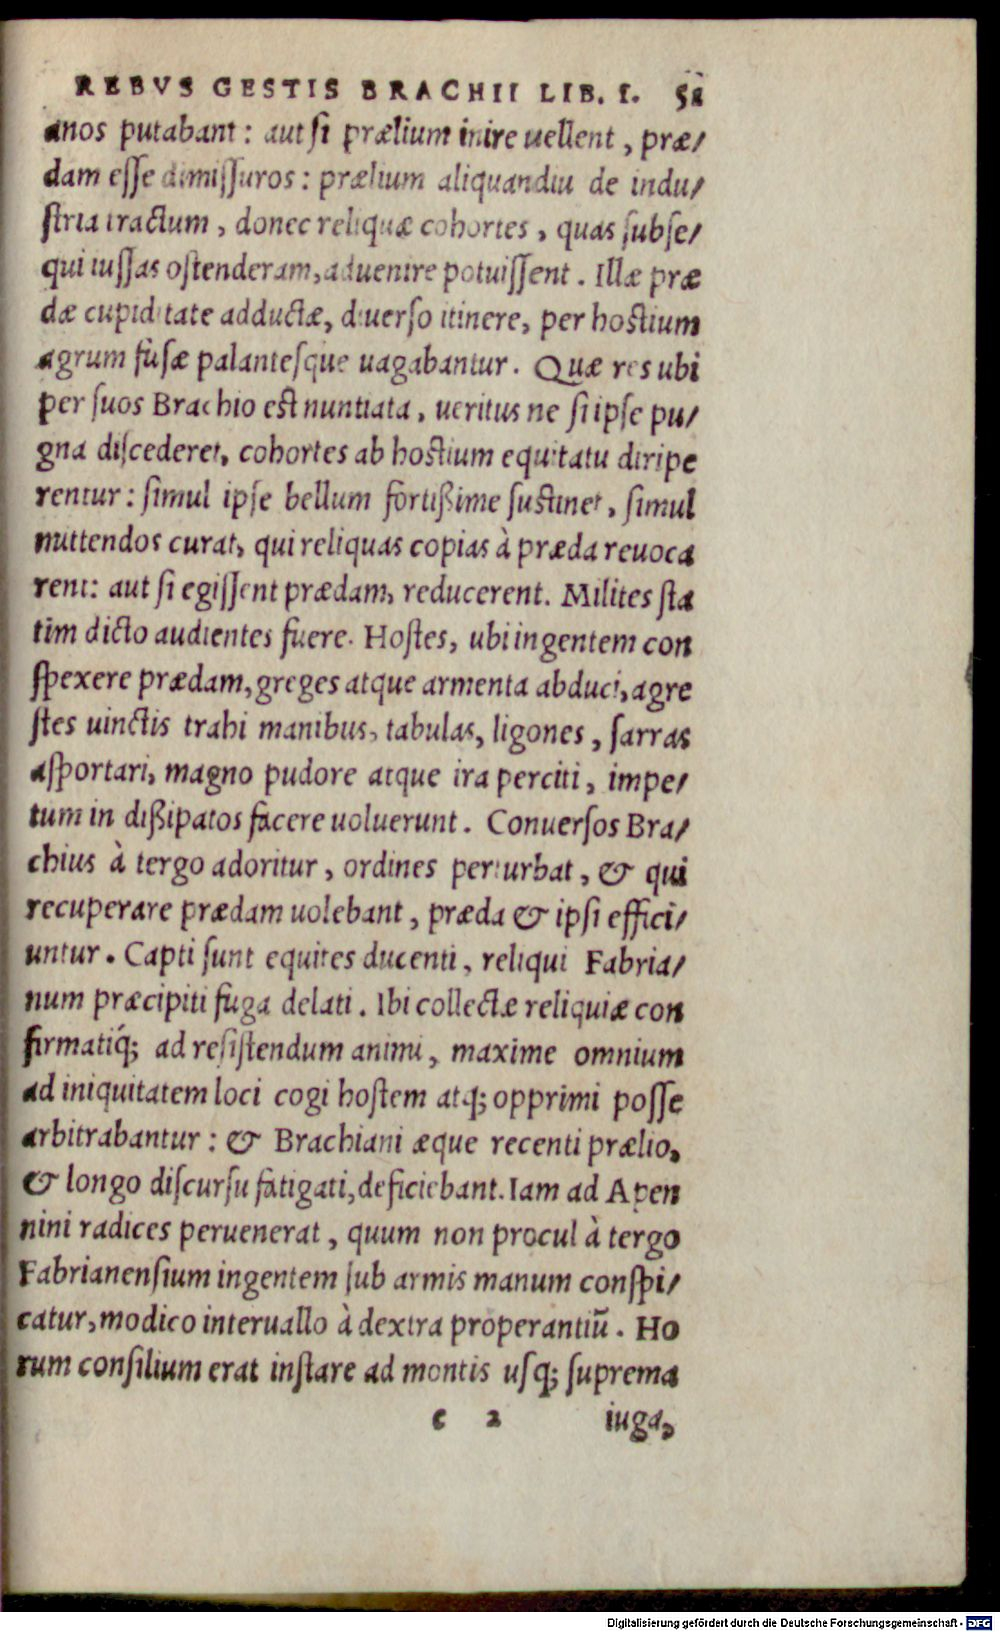 REBVS GESTIS BRACHII LIB. I. 51
anos putabant: aut si prælium inire uellent, præ/
dam esse dimissuros: prælium aliquandiu de indu/
stria tractum, donec reliquæ cohortes, quas subse/
qui iussas ostenderam, aduenire potuissent. Illæ præ
dæ cupiditate adductæ, diuerso itinere, per hostium
agrum fusæ palantesque uagabantur. Quæ res ubi
per suos Brachio est nuntiata, ueritus ne si ipse pu/
gna discederet, cohortes ab hostium equitatu diripe
rentur: simul ipse bellum fortißime sustinet, simul
mittendos curat, qui reliquas copias à præda reuoca
rent: aut si egissent prædam, reducerent. Milites sta
tim dicto audientes fuere. Hostes, ubi ingentem con
spexere prædam, greges atque armenta abduci, agre
stes uinctis trahi manibus, tabulas, ligones, sarras
asportari, magno pudore atque ira perciti, impe/
tum in dißipatos facere uoluerunt. Conuersos Bra/
chius à tergo adoritur, ordines perturbat, & qui
recuperare prædam uolebant, præda & ipsi effici/
untur. Capti sunt equites ducenti, reliqui Fabria/
num præcipiti fuga delati. Ibi collectæ reliquiæ con
firmatiq́; ad resistendum animi, maxime omnium
ad iniquitatem loci cogi hostem atq; opprimi posse
arbitrabantur: & Brachiani æque recenti prælio,
& longo discursu fatigati, deficiebant. Iam ad Apen
nini radices peruenerat, quum non procul à tergo
Fabrianensium ingentem sub armis manum conspi/
catur, modico interuallo à dextra properantiū. Ho
rum consilium erat instare ad montis usq; suprema
c 2 iuga,
Digitalisierung gefördert durch die Deutsche Forschungsgemeinschaft - DFG